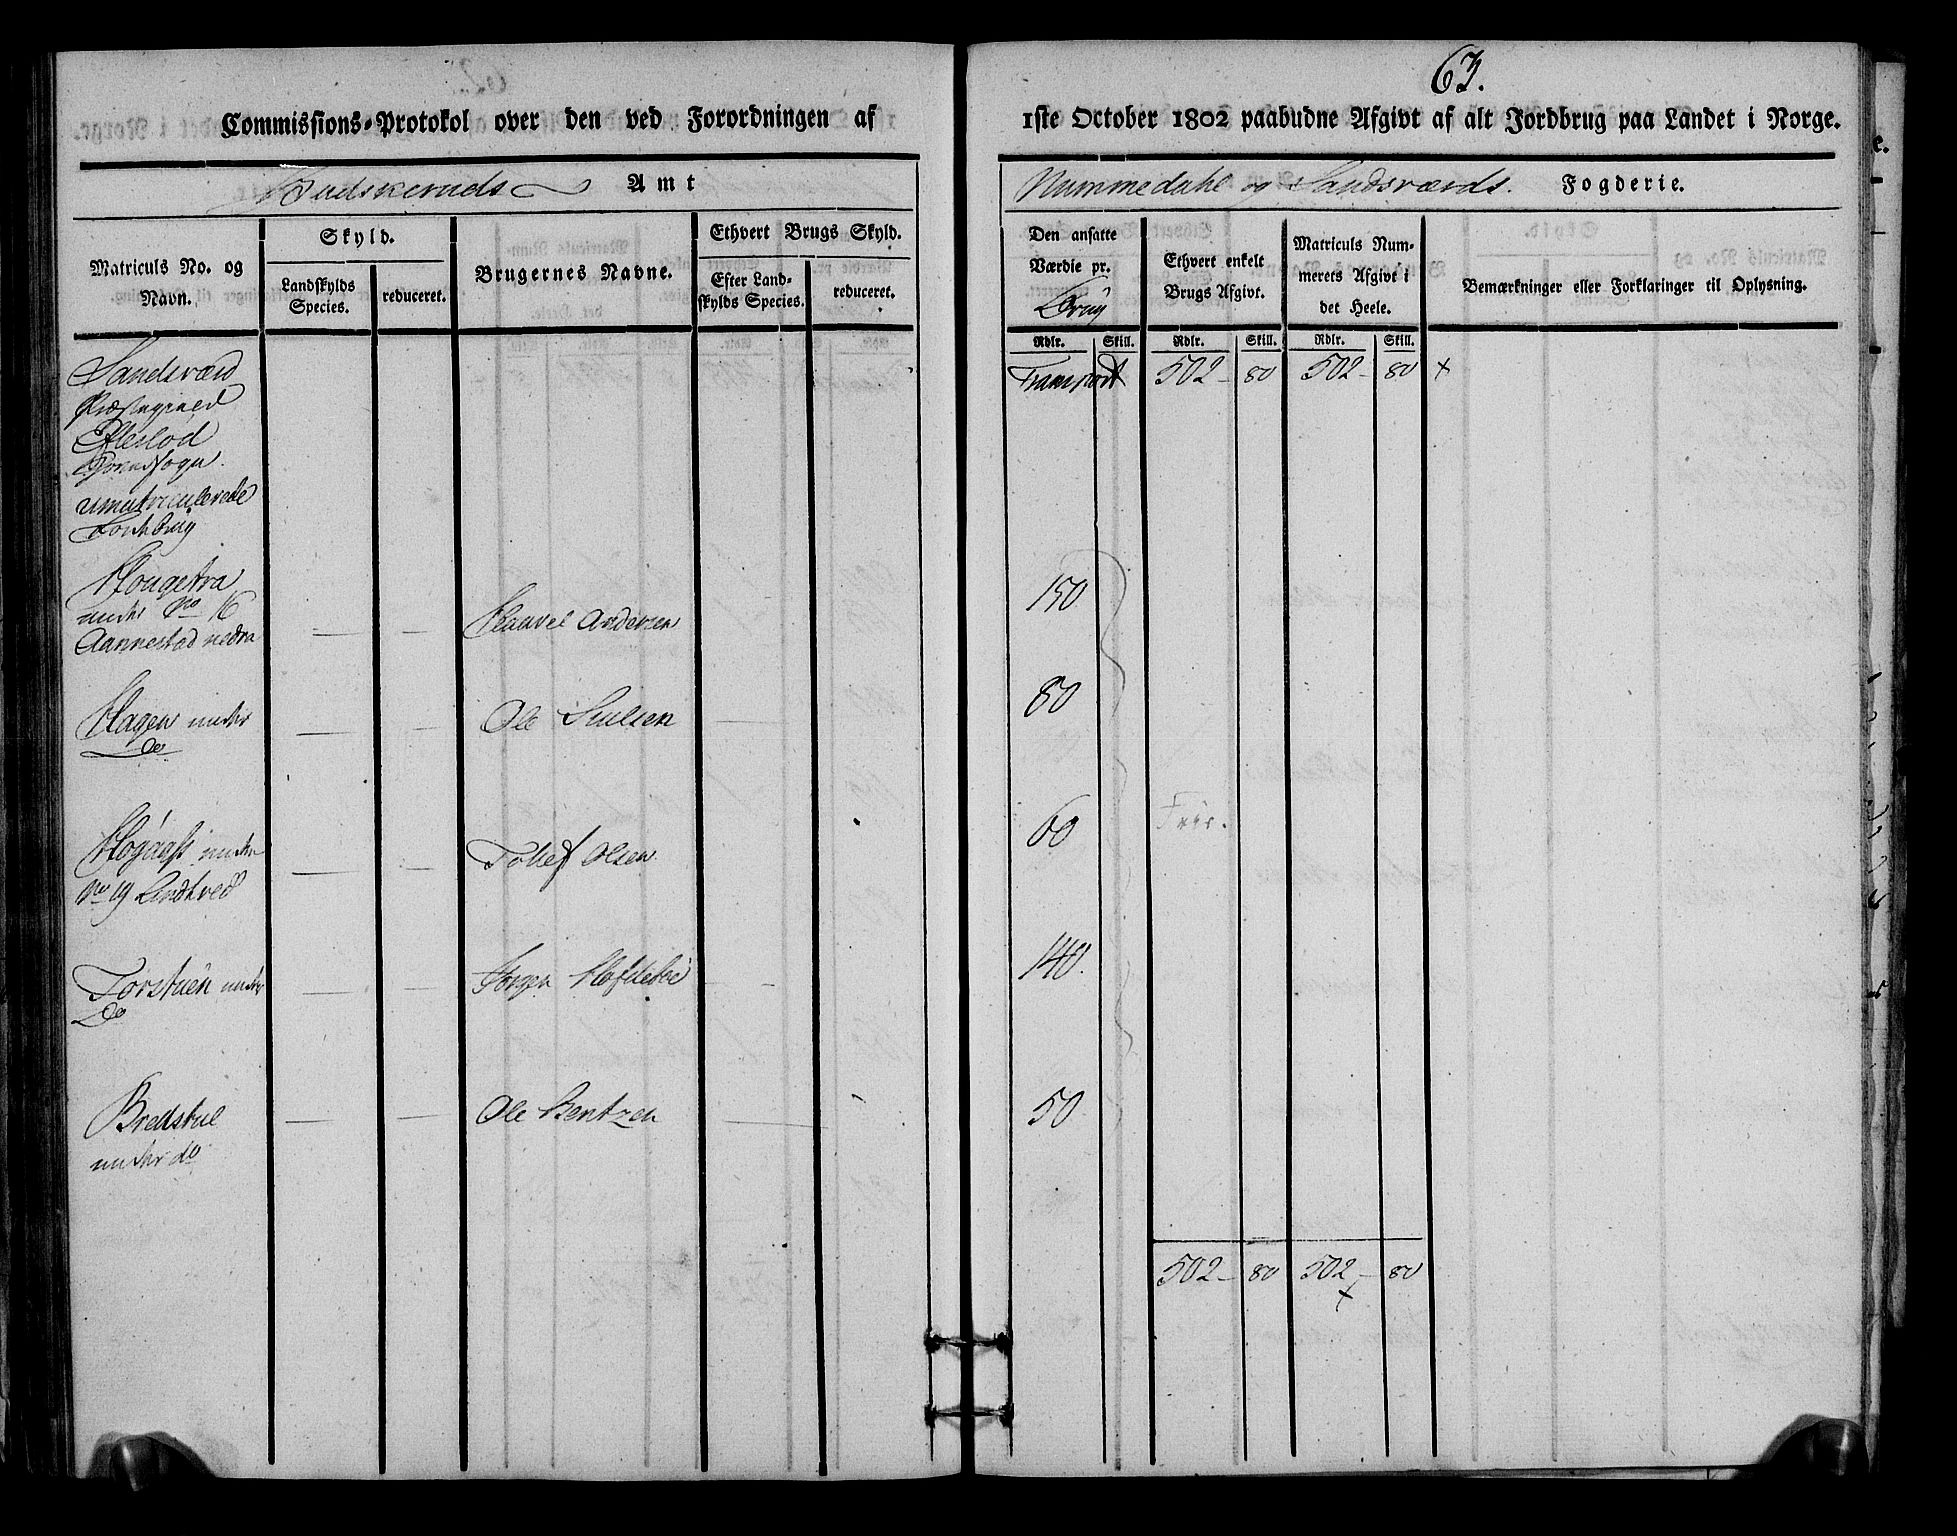 63.
Commissions-Protokol over den ved Forordningen af 1ste October 1802 paabudne Afgivt af alt Jordbrug paa Landet i Norge.
Budskeruds Amt
Nummedahl og Sandsværds. Fogderie.
Matriculs No. og Navn.
Skyld.
Landskylds Species.
reduceret.
Brugernes Navne.
Ethvert Brugs Skyld.
Efter Landskylds Species.
reduceret.
Den ansatte Værdie pr.
Brug
Ethvert enkelt Brugs Afgivt.
Matriculs Nummerets Afgivt i det Heele.
Bemærkninger eller Forklaringer til Oplysning.
Rdlr. Skill. Rdlr. Skill. Rdlr. Skill.
Sandsværd
Præstegield
Efteslød
Sogn
umatriculerede
Jordbrug
Transport 502 – 80 502 – 80 x
Hougetra
under No 16
Aannestad nedra — — Haavel Andersen 150
Hagen under
Do — — Ole Juelsen — 80
Høgaass under
No 19 Lindtved — — Tollef Olsen 60 Frie.
Torstuen under
Do — — Jørgen 140.
Bredstul
under do — — Ole Bentzen — 50
502 – 80 502 – 80
x